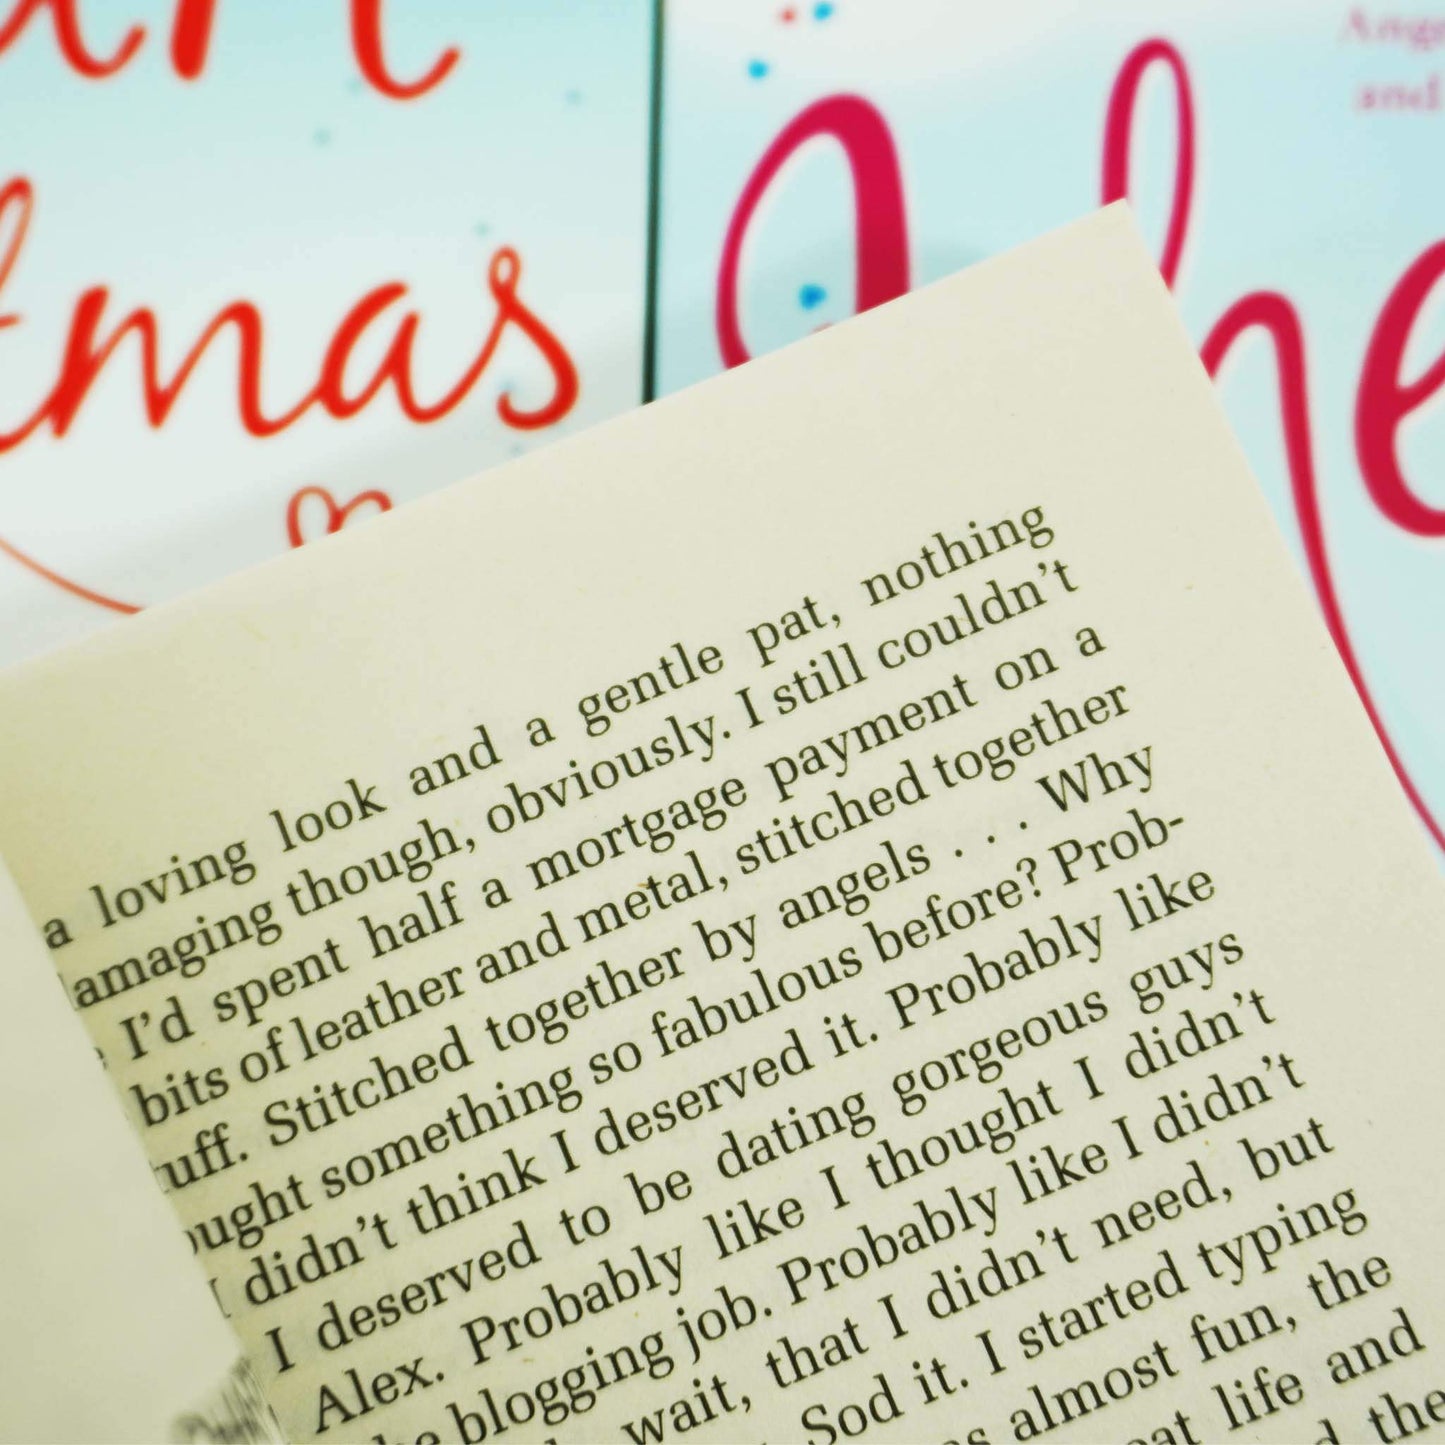 tmas
Ange
and
he
a loving look and a gentle pat, nothing
amaging though, obviously. I still couldn't
I'd spent half a mortgage payment on a
bits of leather and metal, stitched together
tuff. Stitched together by angels . . . Why
ought something so fabulous before? Prob-
I didn't think I deserved it. Probably like
I deserved to be dating gorgeous guys
Alex. Probably like I thought I didn't
blogging job. Probably like I didn't
wait, that I didn't need, but
Sod it. I started typing
almost fun, the
life and
the